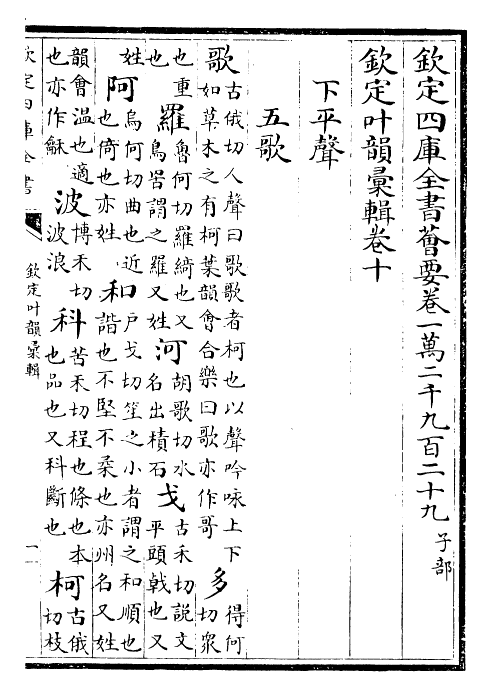 欽定四庫全書薈要卷一萬二千九百二十九 子部
欽定叶韻彙輯卷十
下平聲
五歌
歌 古俄切人聲曰歌歌者柯也以聲吟咏上下如草木之有柯葉韻會合樂曰歌亦作哥 多 得何切衆
也重也 羅 魯何切羅綺也又鳥罟謂之羅又姓 河 胡歌切水名出積石 戈 古禾切說文平頭戟也又
姓 阿 烏何切曲也近也倚也亦姓 和 戶戈切笙之小者謂之和順也諧也不堅不柔也亦州名又姓
韻會溫也適也亦作龢 波 博禾切波浪 科 苦禾切程也條也本也品也又科斷也 柯 古俄切枝
欽定四庫全書 欽定叶韻彙輯 一